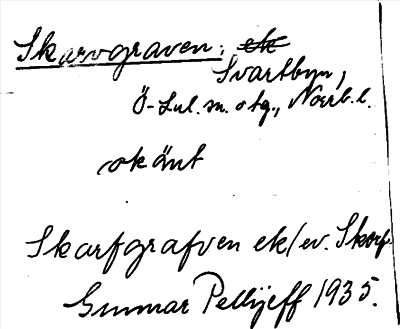 Skarvgraven, ek
Svartbyn,
Ö-Lul. m. o tg., Norrb. l.
okänt
Skarfgrafven ek/ev. Skarf
Gunnar Pellijeff 1935.